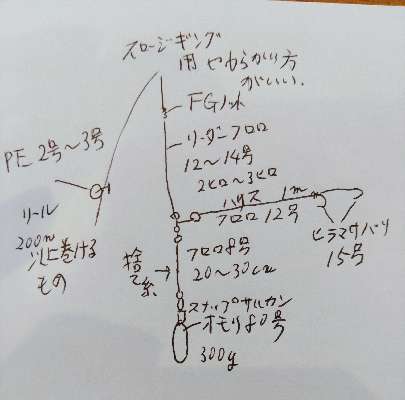 スロージギング
用 やわらかい方
がいい。
FGノット
PE 2号〜3号
リーダーフロロ
12〜14号
2ヒロ〜3ヒロ
リール
200m
以上巻ける
もの
ハリス 1m
フロロ 12号
ヒラマサバリ
15号
捨て糸→
フロロ8号
20〜30cm
スナップサルカン
オモリ80号
300g